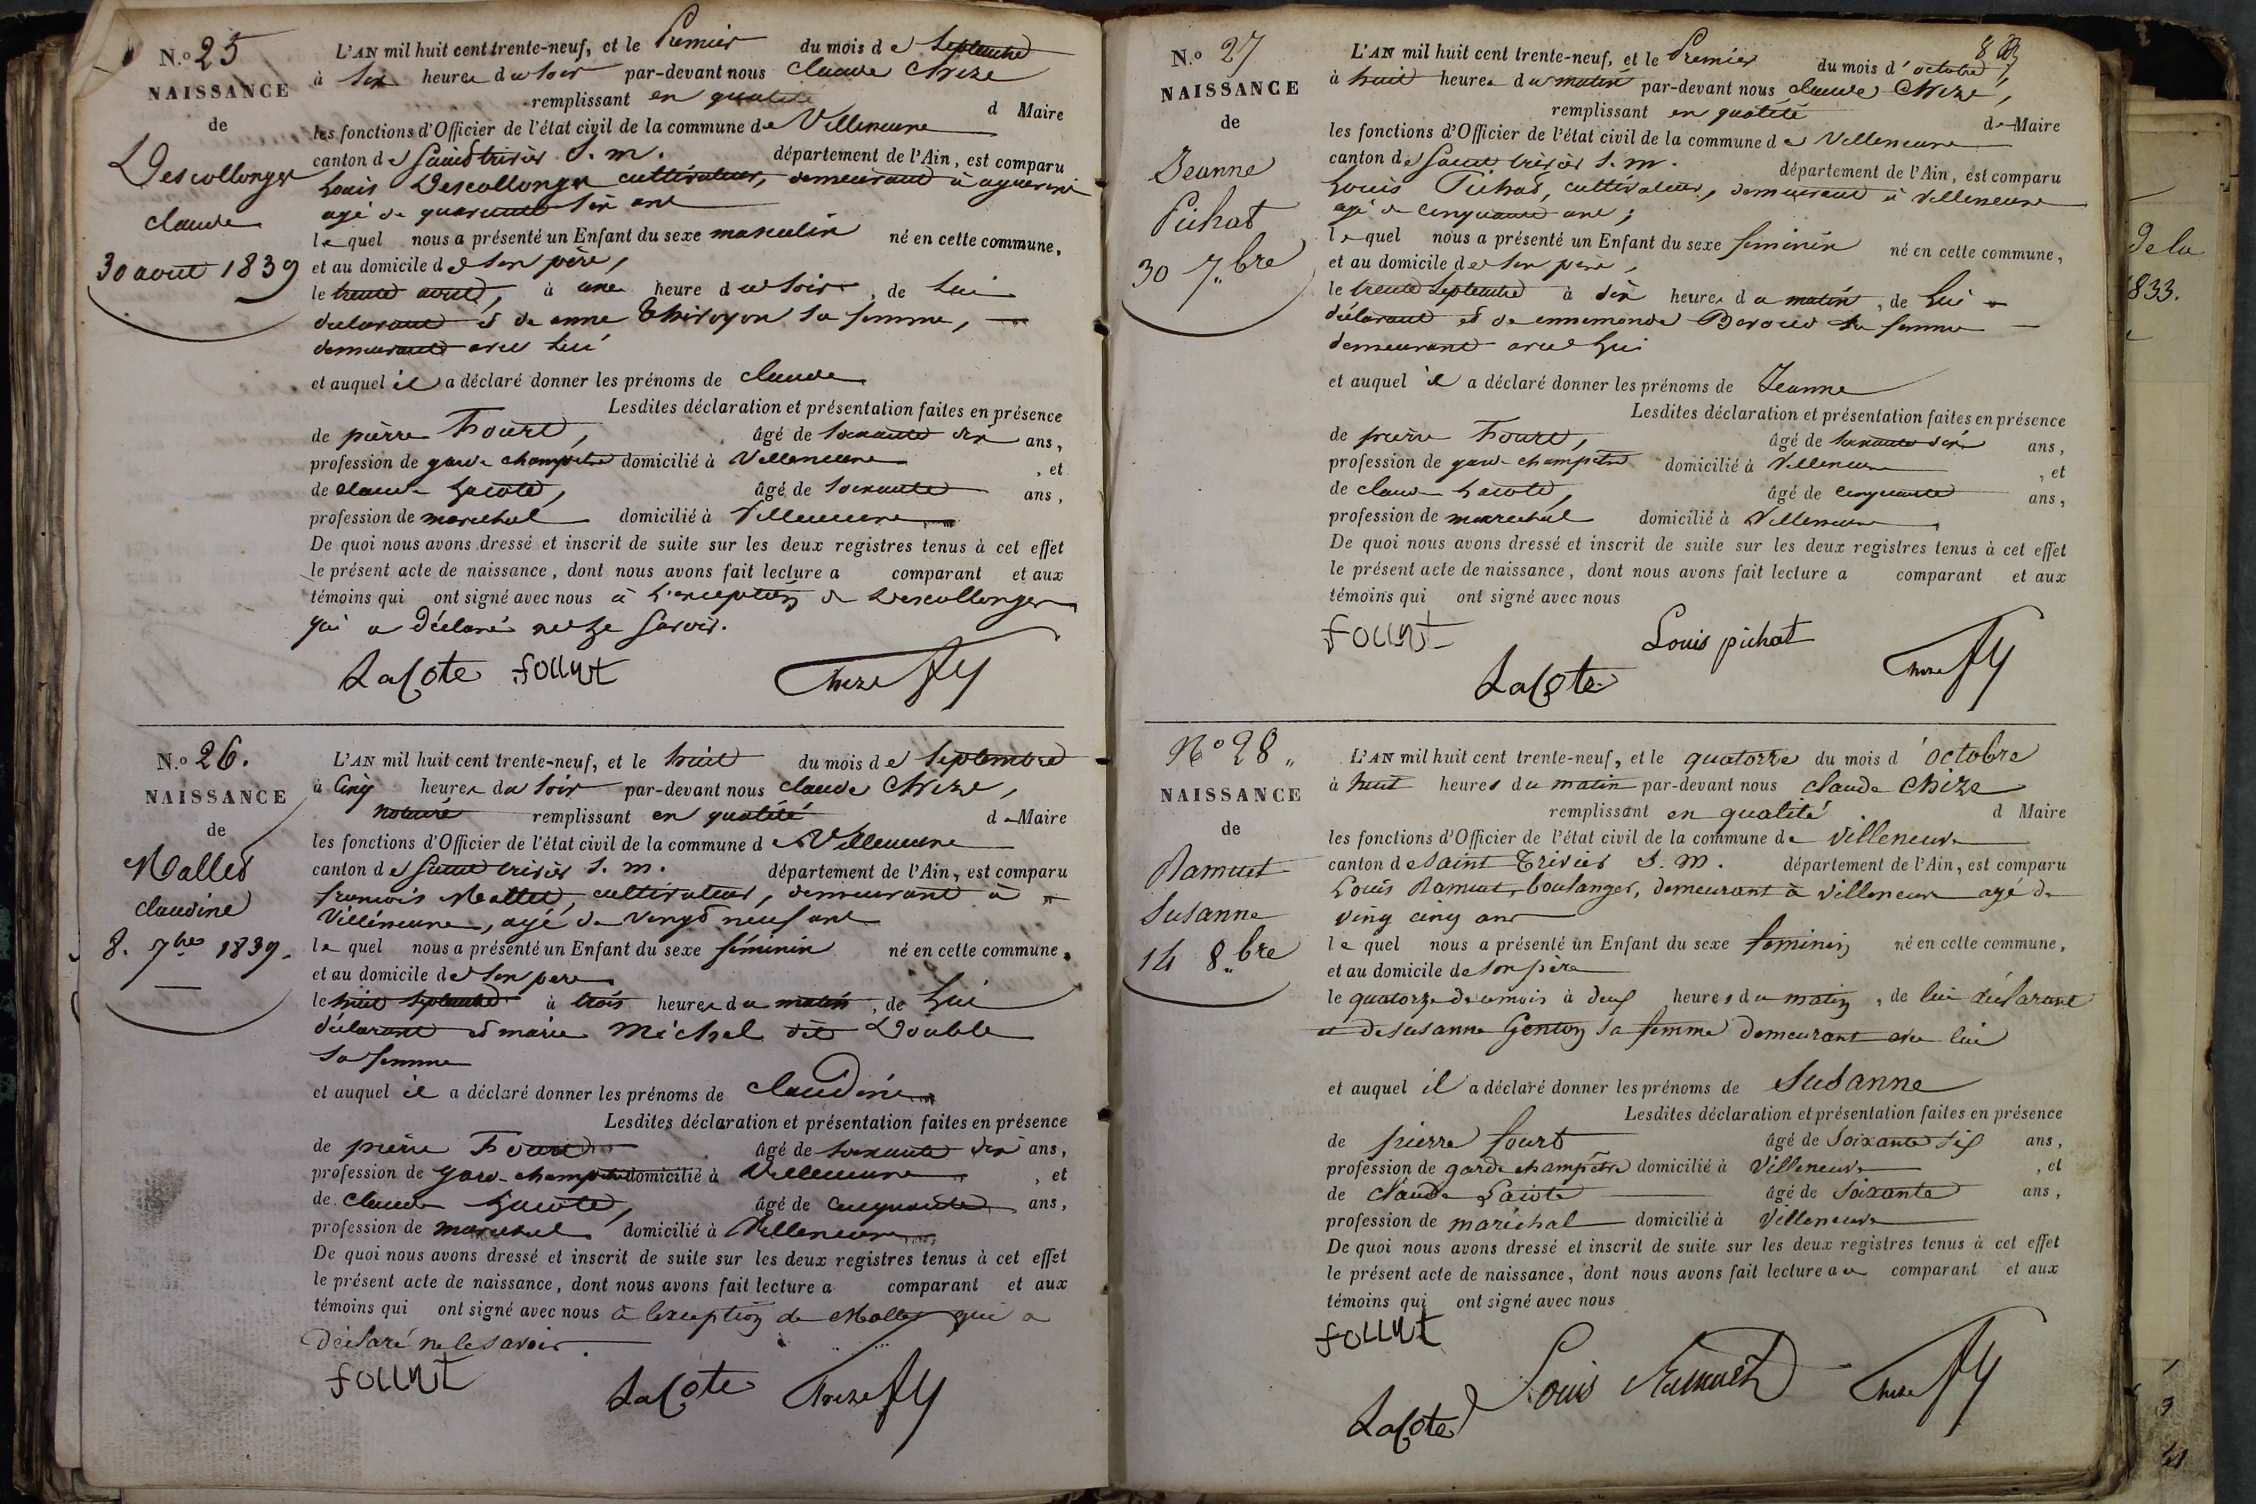 N.o 25
NAISSANCE
de
Descollonge
claude
30 aout 1839
L'AN mil huit cent trente-neuf, et le Premier du mois de Septembre
à Six heures du soir par-devant nous Claude Chize
remplissant en qualité d Maire
les fonctions d'Officier de l'état civil de la commune de Villeneuve
canton de Saint trivier S. m. département de l'Ain, est comparu
Louis Descollonge cultivateur, demeurant à
agé de quarante Six ans
le quel nous a présenté un Enfant du sexe masculin né en cette commune,
et au domicile de Son père,
le trente aout, à une heure du soir, de Lui
déclarant et de anne Thivoyon Sa femme,
demeurant avec Lui
et auquel il a déclaré donner les prénoms de Claude
Lesdites déclaration et présentation faites en présence
de pierre Fourt, âgé de Soixante Six ans,
profession de garde champetre domicilié à Villeneuve, et
de claude Lacote, âgé de Soixante ans,
profession de marechal domicilié à Villeneuve
De quoi nous avons dressé et inscrit de suite sur les deux registres tenus à cet effet
le présent acte de naissance, dont nous avons fait lecture a comparant et aux
témoins qui ont signé avec nous à L'exception de Descollonge
qui a Déclaré ne Le Savoir.
LaCote fount Chize
N.o 26.
NAISSANCE
de
Mallet
claudine
8. 7bre 1839.
L'AN mil huit cent trente-neuf, et le huit du mois de Septembre
à Cinq heures du soir par-devant nous Claude Chize,
notaire remplissant en qualité de Maire
les fonctions d'Officier de l'état civil de la commune de Villeneuve
canton de Saint trivier S. m. département de l'Ain, est comparu
francois Mallet, cultivateur, demeurant à
Villeneuve, agé de vingt neuf ans
le quel nous a présenté un Enfant du sexe féminin né en cette commune,
et au domicile de Son pere
le huit Septembre à trois heures du matin, de Lui
déclarant et marie Michel dit Double
Sa femme
et auquel il a déclaré donner les prénoms de Claudine
Lesdites déclaration et présentation faites en présence
de pierre Fourt âgé de Soixante Six ans,
profession de garde champetre domicilié à Villeneuve, et
de Claude Lacote, âgé de Cinquante ans,
profession de marechal domicilié à Villeneuve
De quoi nous avons dressé et inscrit de suite sur les deux registres tenus à cet effet
le présent acte de naissance, dont nous avons fait lecture a comparant et aux
témoins qui ont signé avec nous à lexception de Mallet qui a
Déclaré ne le savoir.
fount LaCote Chize
N.o 27
NAISSANCE
de
Jeanne
Pichat
30 7bre
L'AN mil huit cent trente-neuf, et le Premier du mois d'octobre,
à huit heures du matin par-devant nous claude Chize,
remplissant en qualité de Maire
les fonctions d'Officier de l'état civil de la commune de Villeneuve
canton de Saint trivier S. m. département de l'Ain, est comparu
Louis Pichat, cultivateur, demeurant à Villeneuve
agé de Cinquante ans;
le quel nous a présenté un Enfant du sexe féminin né en cette commune,
et au domicile de Son père,
le trente Septembre à Six heures du matin, de Lui
déclarant et de ennemonde Sa femme
demeurant avec Lui
et auquel il a déclaré donner les prénoms de Jeanne
Lesdites déclaration et présentation faites en présence
de pierre Fourt, âgé de Soixante Six ans,
profession de garde champetre domicilié à Villeneuve, et
de Claude Lacote, âgé de Cinquante ans,
profession de marechal domicilié à Villeneuve
De quoi nous avons dressé et inscrit de suite sur les deux registres tenus à cet effet
le présent acte de naissance, dont nous avons fait lecture a comparant et aux
témoins qui ont signé avec nous
fount Louis pichat
LaCote Chize
No 28
NAISSANCE
de
Ramuet
Susanne
14 8bre
L'AN mil huit cent trente-neuf, et le quatorze du mois d'octobre
à huit heures du matin par-devant nous Claude Chize
remplissant en qualité d Maire
les fonctions d'Officier de l'état civil de la commune de Villeneuve
canton de Saint Trivier S. M. département de l'Ain, est comparu
Louis Ramuet, boulanger, demeurant à Villeneuve agé de
ving cinq ans
le quel nous a présenté un Enfant du sexe feminin né en cette commune,
et au domicile de Son père
le quatorze de ce mois à deux heures du matin, de lui déclarant
et de Susanne Genton Sa femme demeurant avec lui
et auquel il a déclaré donner les prénoms de Susanne
Lesdites déclaration et présentation faites en présence
de pierre fourt âgé de Soixante Six ans,
profession de garde champêtre domicilié à Villeneuve, et
de Claude Lacote âgé de Soixante ans,
profession de maréchal domicilié à Villeneuve
De quoi nous avons dressé et inscrit de suite sur les deux registres tenus à cet effet
le présent acte de naissance, dont nous avons fait lecture au comparant et aux
témoins qui ont signé avec nous
fount
LaCote Louis Ramuet Chize
De la
833.